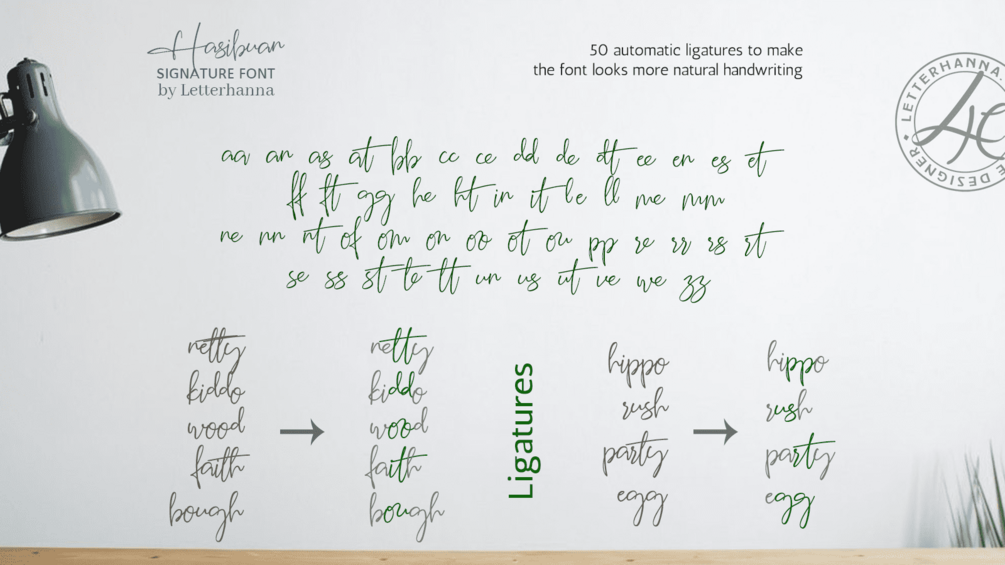 Hasibuan
SIGNATURE FONT
by Letterhanna
50 automatic ligatures to make
the font looks more natural handwriting
LETTERHANNA
DESIGNER
aa an as at bb cc ce dd de dt ee en es et
ff ft gg he ht in it le ll me mm
ne nn nt of om on oo ot ou pp re rr rs rt
se ss st te tt un us ut ve we zz
netty netty
kiddo kiddo
wood wood
faith faith
bough bough
Ligatures
hippo hippo
rush rush
party party
egg egg